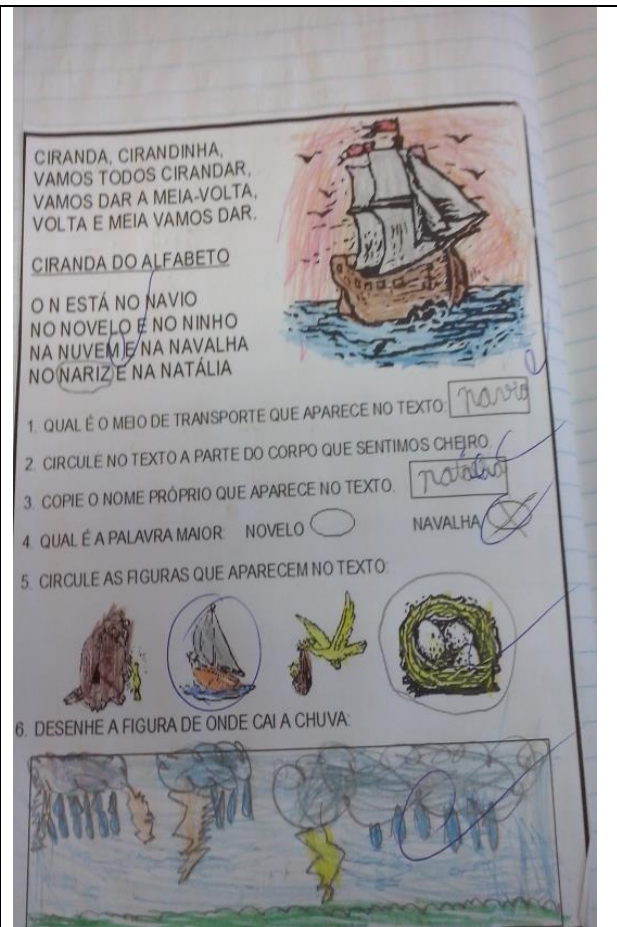 CIRANDA, CIRANDINHA,
VAMOS TODOS CIRANDAR,
VAMOS DAR A MEIA-VOLTA,
VOLTA E MEIA VAMOS DAR.
CIRANDA DO ALFABETO
O N ESTÁ NO NAVIO
NO NOVELO E NO NINHO
NA NUVEM E NA NAVALHA
NO NARIZ E NA NATÁLIA
1. QUAL É O MEIO DE TRANSPORTE QUE APARECE NO TEXTO: navio
2. CIRCULE NO TEXTO A PARTE DO CORPO QUE SENTIMOS CHEIRO.
3. COPIE O NOME PRÓPRIO QUE APARECE NO TEXTO.
4. QUAL É A PALAVRA MAIOR: NOVELO NAVALHA X
5. CIRCULE AS FIGURAS QUE APARECEM NO TEXTO:
6. DESENHE A FIGURA DE ONDE CAI A CHUVA: